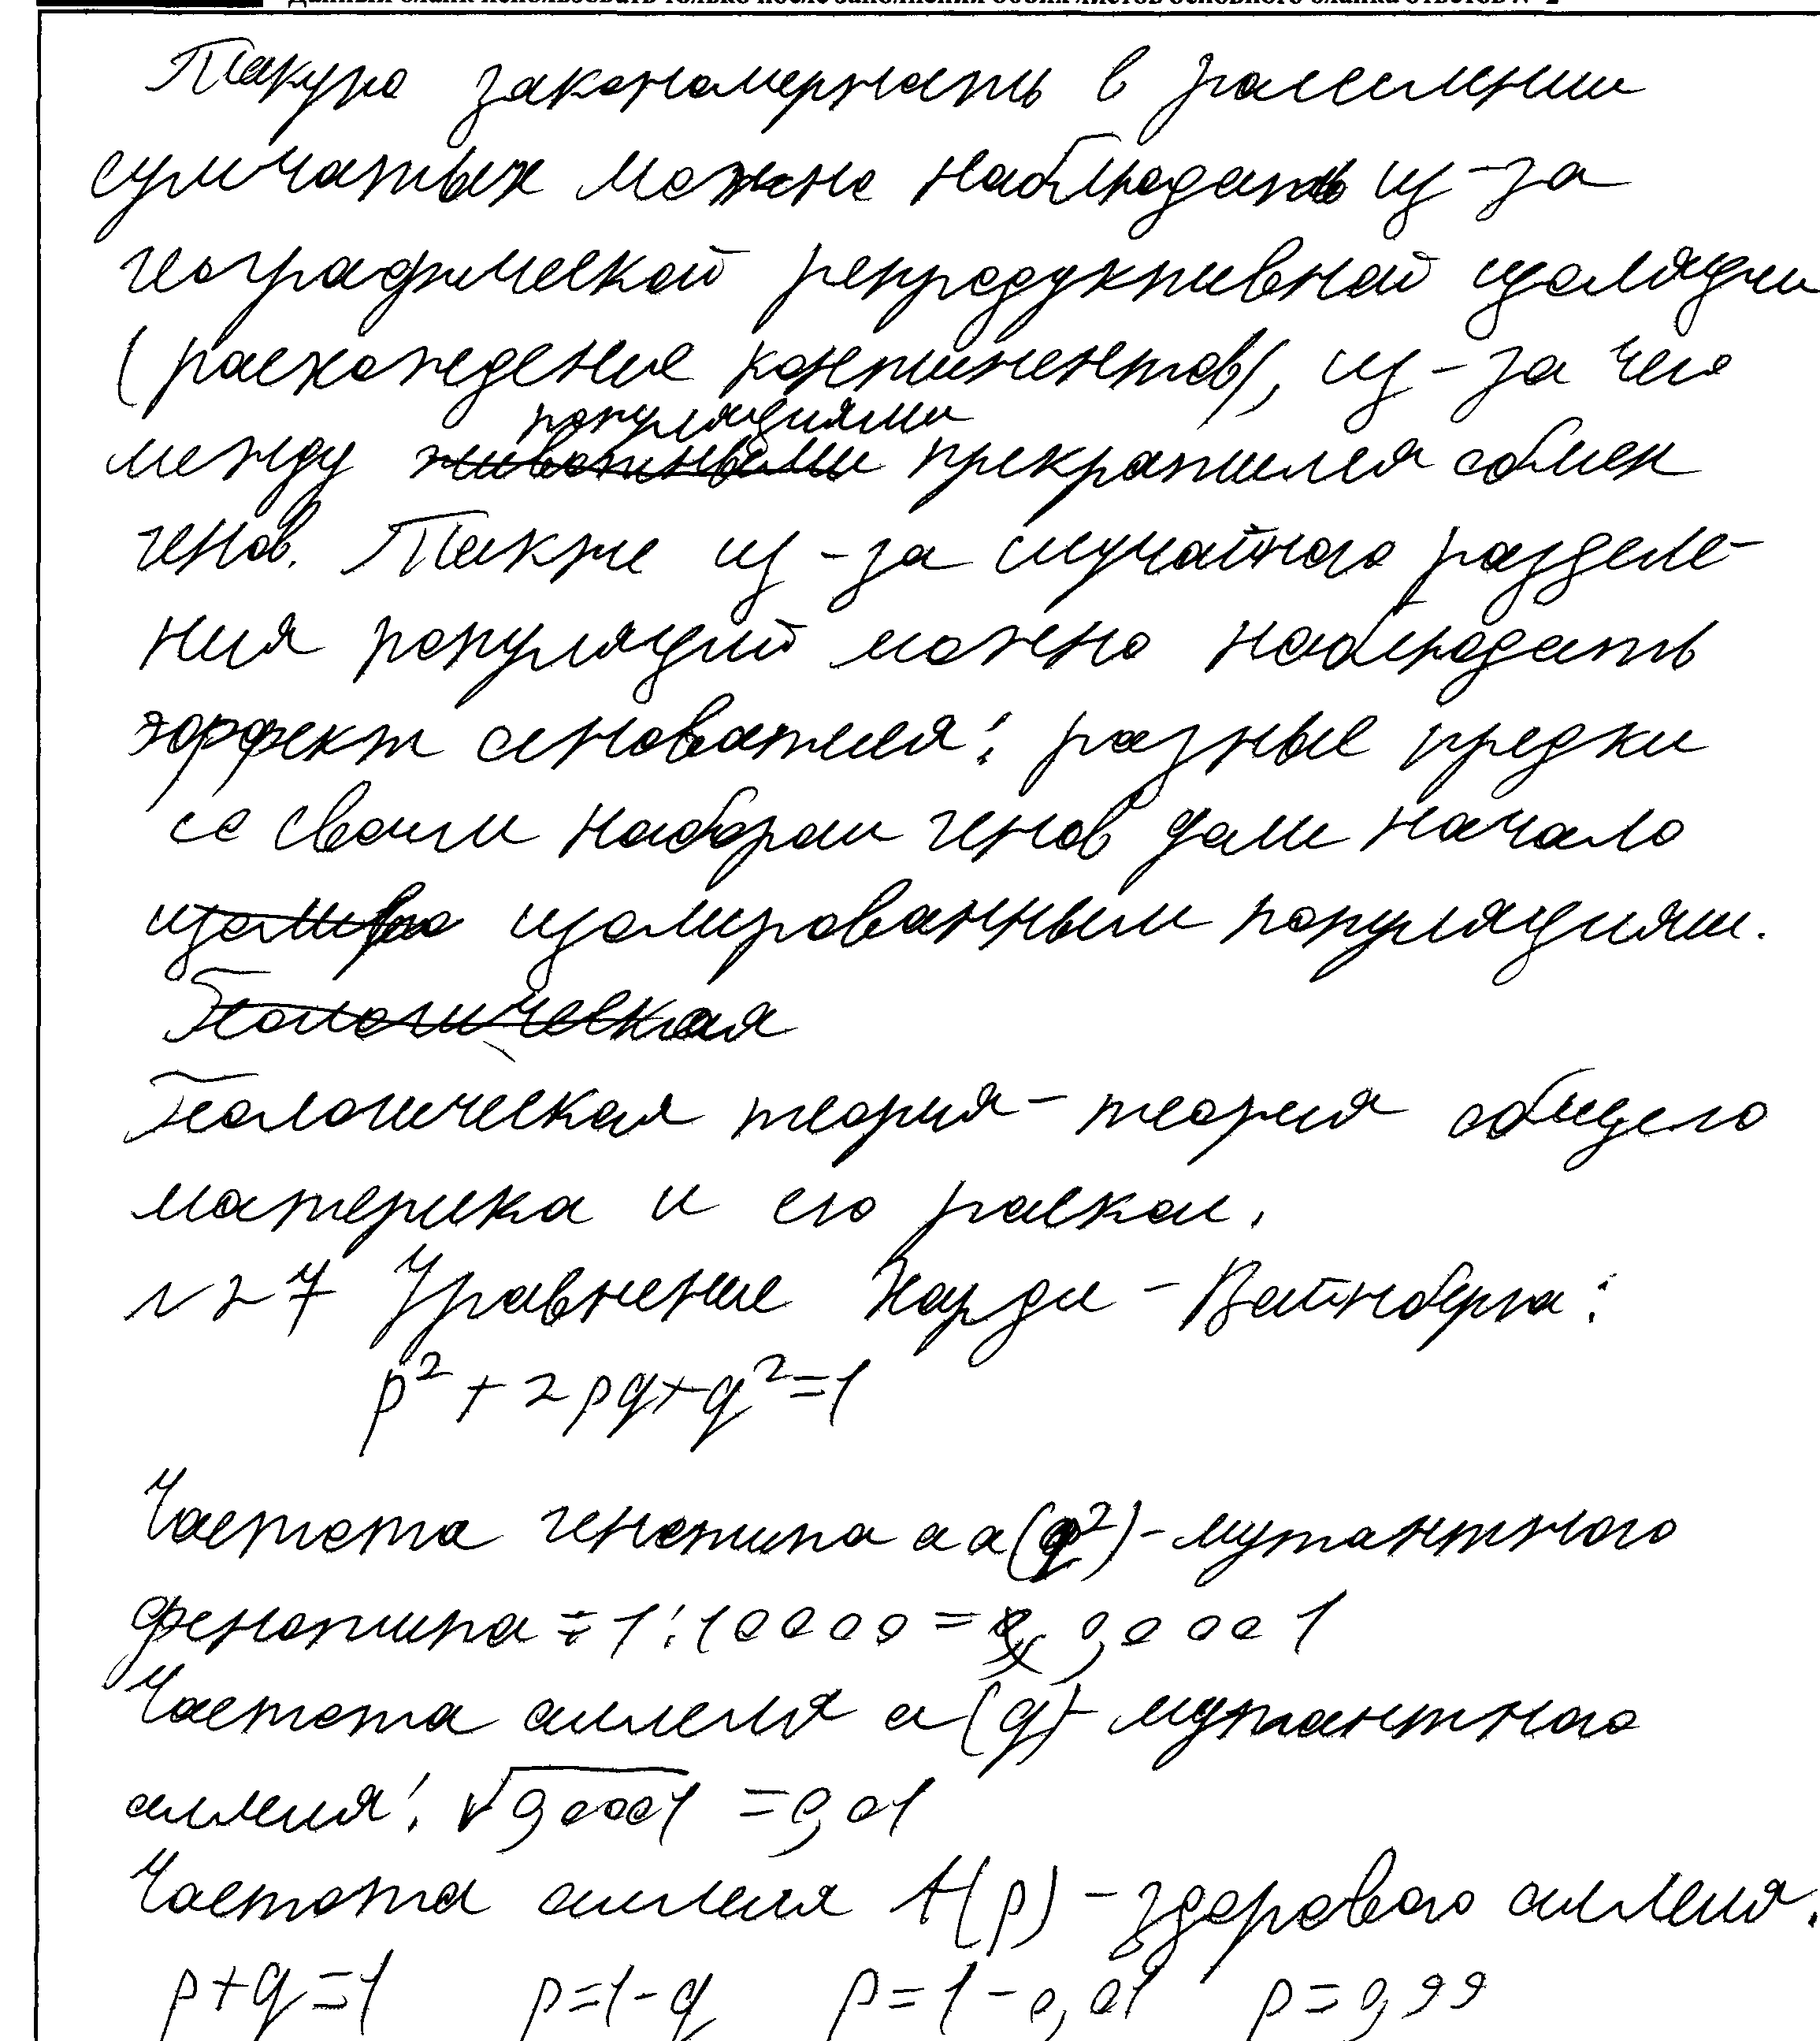 Такую закономерность в расселении
сумчатых можно наблюдать из-за
географической репродуктивной изоляции
(расхождение континентов), из-за чего
популяциями
между животными прекратился обмен
генов. Также из-за случайного разделе-
ния популяций можно наблюдать
эффект основателя: разные предки
со своим набором генов дали начало
изолированным популяциям.
Геологическая
Геологическая теория - теория общего
материка и его раскол.
№27 Уравнение Харди - Вайнберга:
p²+2pq+q²=1
Частота генотипа aa(q²)-мутантного
фенотипа = 1:10000 = 0,0001
Частота аллеля a(q)- мутантного
аллеля: √0,0001 = 0,01
Частота аллеля A(p) - здорового аллеля:
p+q=1 p=1-q p=1-0,01 p=0,99